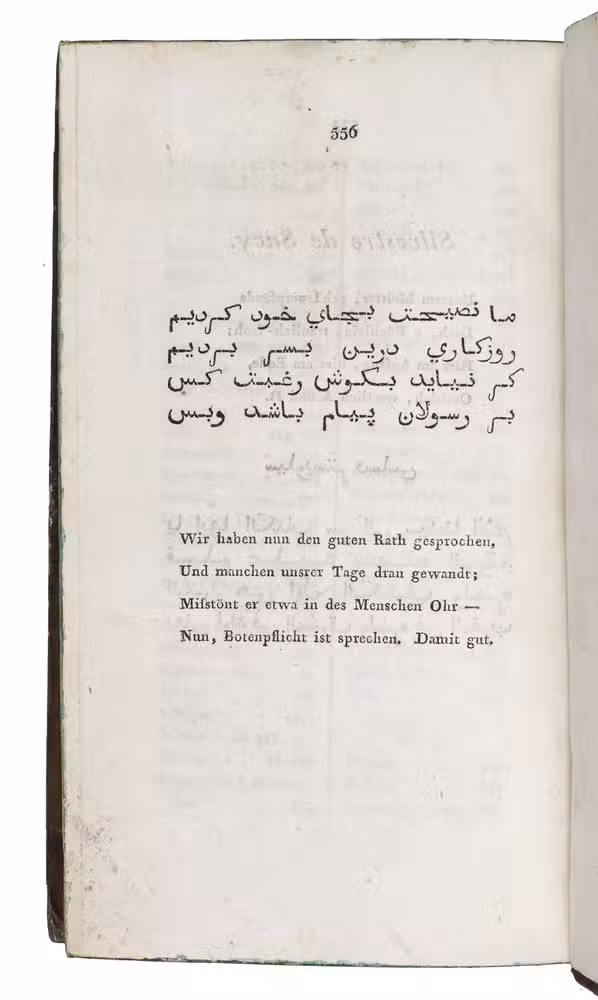 556
ما نصیحت بجاي خود کردیم
روزکاري درین بسر بردیم
کر نیاید بکوش رغبت کس
بر رسولان پیام باشد وبس
Wir haben nun den guten Rath gesprochen,
Und manchen unsrer Tage dran gewandt;
Misstönt er etwa in des Menschen Ohr —
Nun, Botenpflicht ist sprechen. Damit gut.